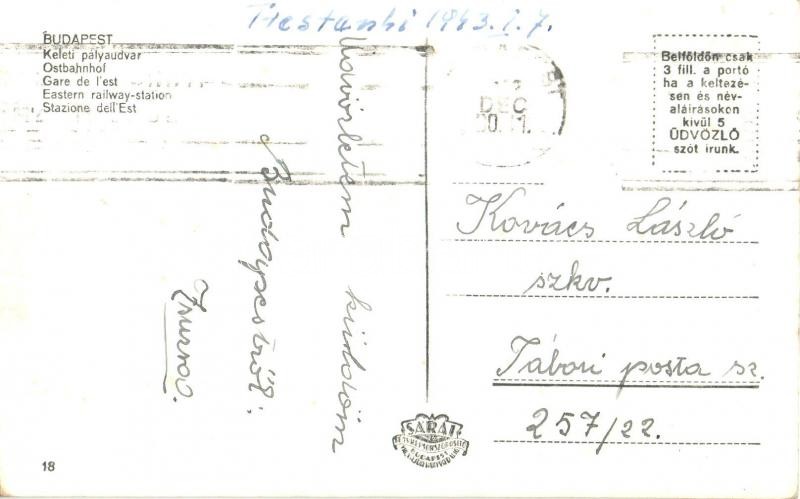 1943.I.7.
BUDAPEST
Keleti pályaudvar
Ostbahnhof
Gare de l'est
Eastern railway-station
Stazione dell'Est
DEC
Belföldön csak
3 fill. a portó
ha a keltezé-
sen és név-
aláirásokon
kívül 5
ÜDVÖZLŐ
szót irunk.
küldöm
Budapestről:
Kovács László
szkv.
Tábori posta sz.
257/22.
SÁRAI
BUDAPEST
18